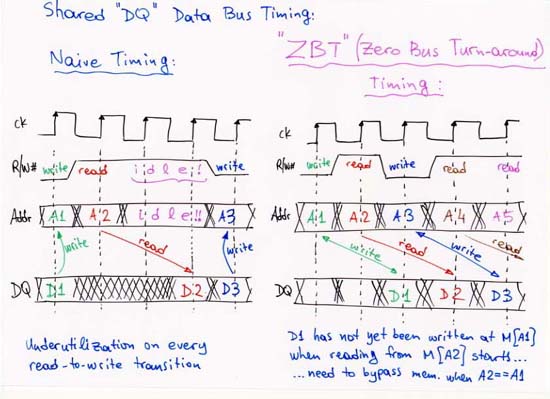 Shared "DQ" Data Bus Timing:
Naive Timing:
"ZBT" (Zero Bus Turn-around)
Timing:
CK
R/W# write read idle!! write
Addr A1 A2 idle!! A3
write read write
DQ D1 D2 D3
Underutilization on every
read-to-write transition
write read write read read
A1 A2 A3 A4 A5
write read write read
D1 D2 D3
D1 has not yet been written at M[A1]
when reading from M[A2] starts...
...need to bypass mem. when A2==A1